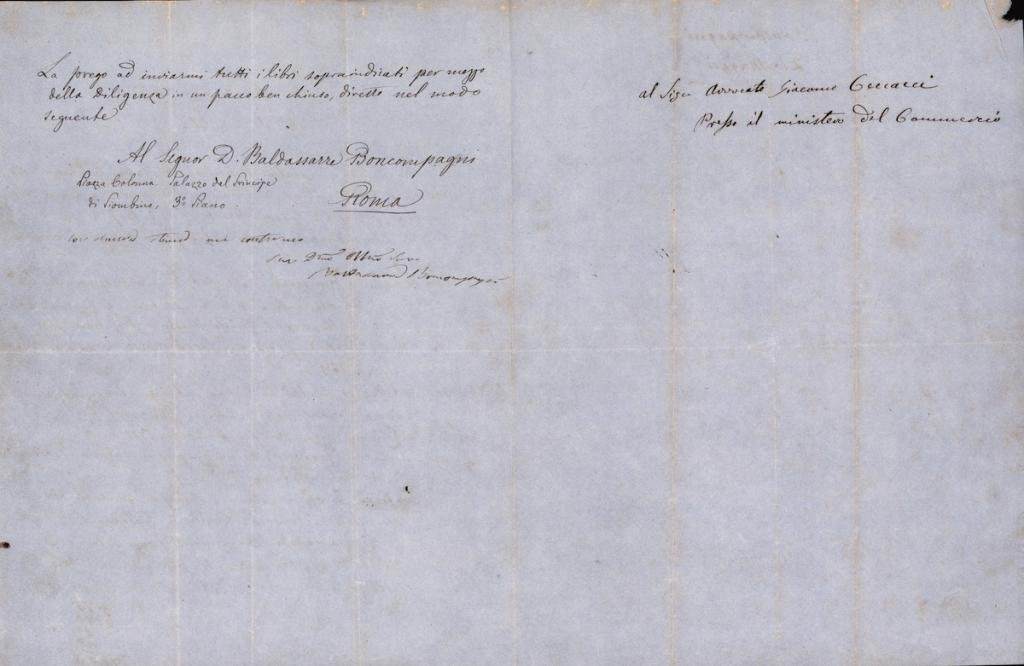 La prego ad inviarmi tutti i libri sopraindicati per mezzo
della diligenza in un pacco ben chiuso, diretto nel modo
seguente
Al Signor D. Baldassarre Boncompagni
Piazza Colonna Palazzo del Principe
di Piombino, 3º Piano.
Roma
con stima mi
Baldassarre Boncompagni
al Sigr Avvocato Giacomo
Presso il ministero del Commercio